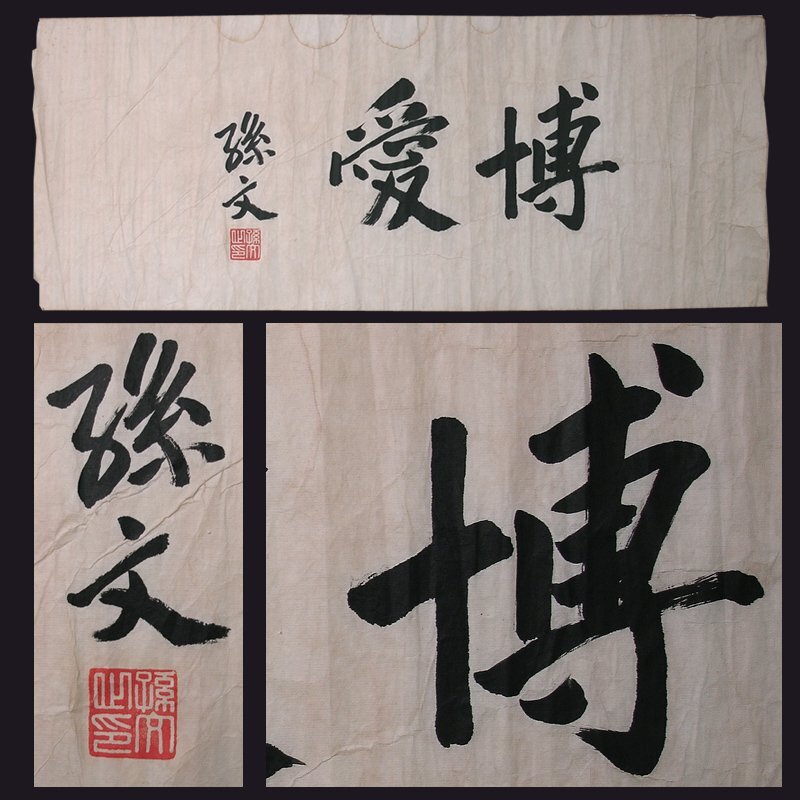 博愛
孫文
孫文之印
孫文
孫文之印
博